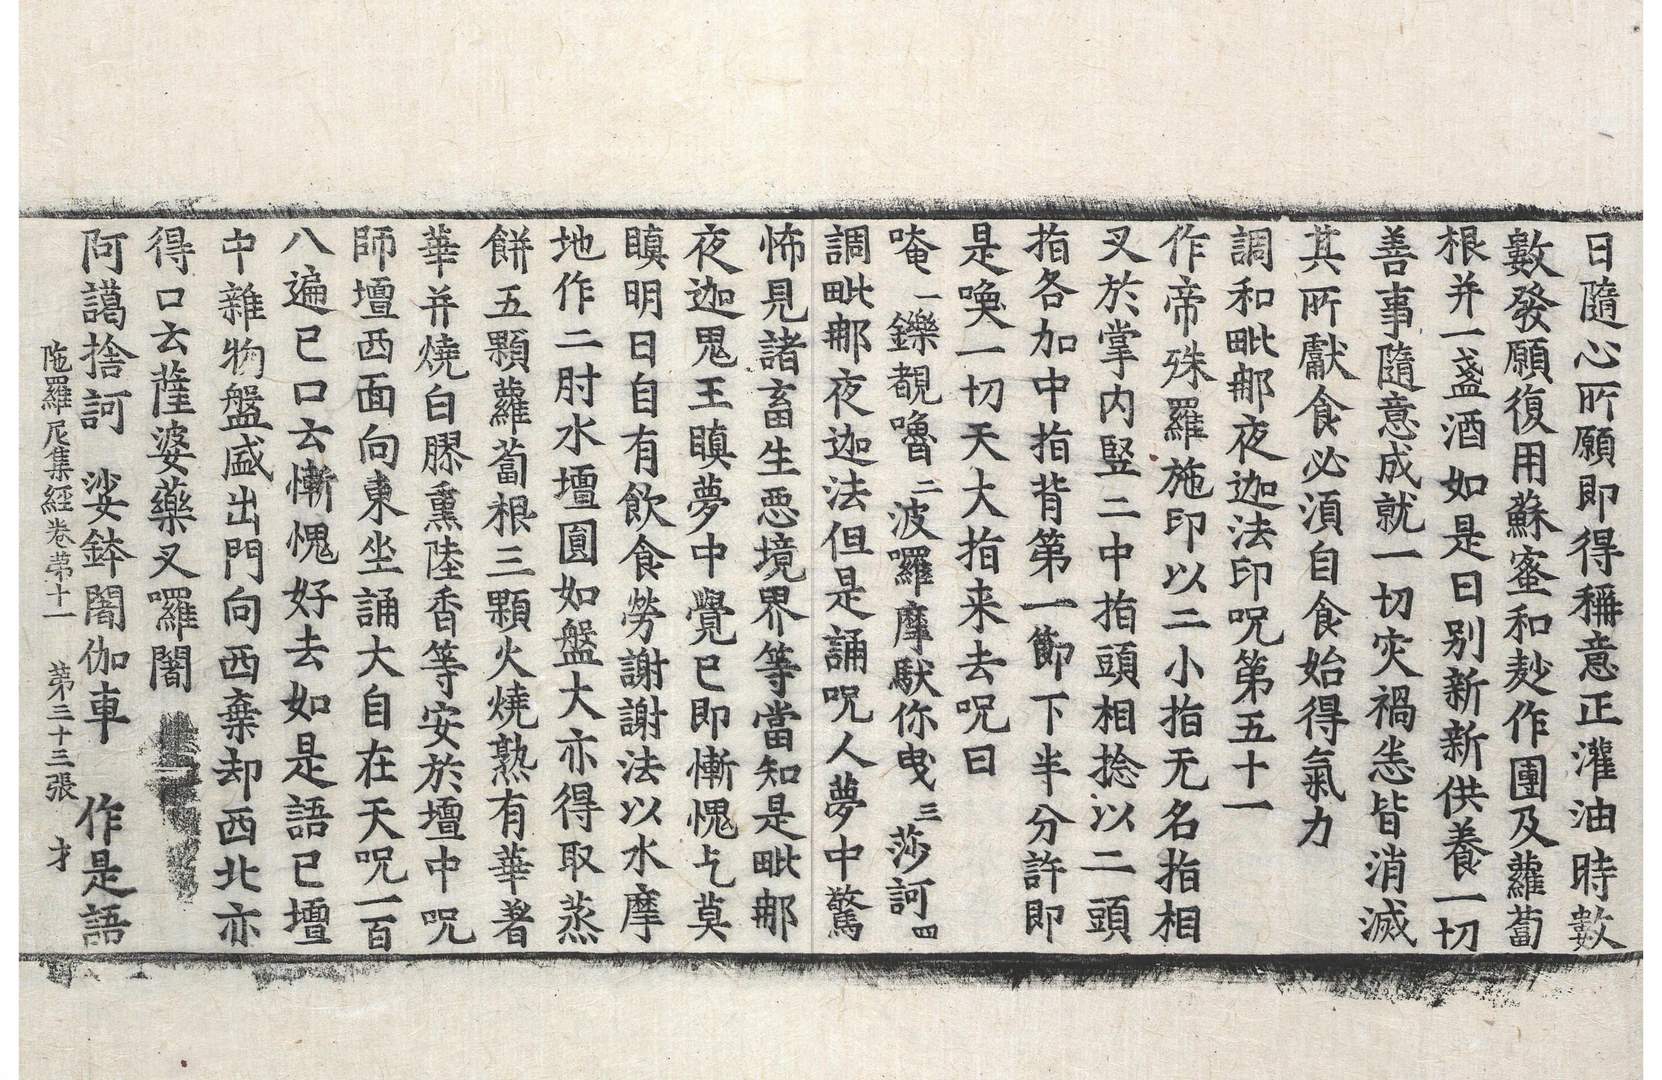 日隨心所願即得稱意正灌油時數
數發願復用蘇蜜和麨作團及蘿蔔
根并一盞酒如是日别新新供養一切
善事隨意成就一切灾禍恙皆消滅
其所獻食必須自食始得氣力
調和毗那夜迦法印呪第五十一
作帝殊羅施印以二小指无名指相
叉於掌内竪二中指頭相捻以二頭
指各加中指背第一節下半分許即
是喚一切天大指来去呪曰
唵一鑠覩嚕二波囉摩馱你曳三莎訶四
調毗那夜迦法但是誦呪人夢中驚
怖見諸畜生惡境界等當知是毗那
夜迦鬼王瞋夢中覺已即慚愧乞莫
瞋明日自有飲食勞謝謝法以水摩
地作二肘水壇圓如盤大亦得取蒸
餅五顆蘿蔔根三顆火燒熟有華著
華并燒白膠熏陸香等安於壇中呪
師壇西面向東坐誦大自在天呪一百
八遍已口云慚愧好去如是語已壇
中雜物盤盛出門向西棄却西北亦
得口云薩婆藥叉囉闍
阿謁捨訶 娑鉢闍伽車 作是語
陁羅尼集經卷第十一 第三十三張 才